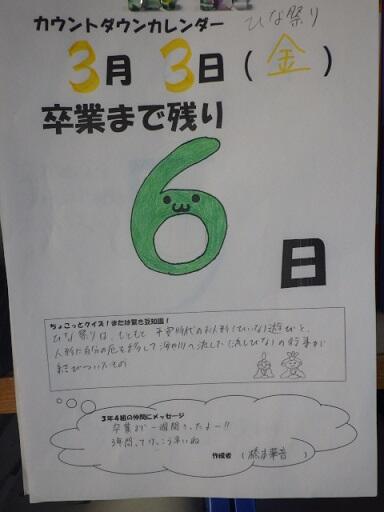 カウントダウンカレンダー
ひな祭り
3月 3日(金)
卒業まで残り
6
日
ちょこっとクイズ!または驚き豆知識!
ひな祭りは、もともと平安時代の人形(ひいな)遊びと、
人形に自分の厄を移して海や川へ流した(流しびな)の行事が
結びついたもの
3年4組の仲間にメッセージ
卒業まで一週間きったよー!!
3年間ってけっこう早いね
作成者 ( )